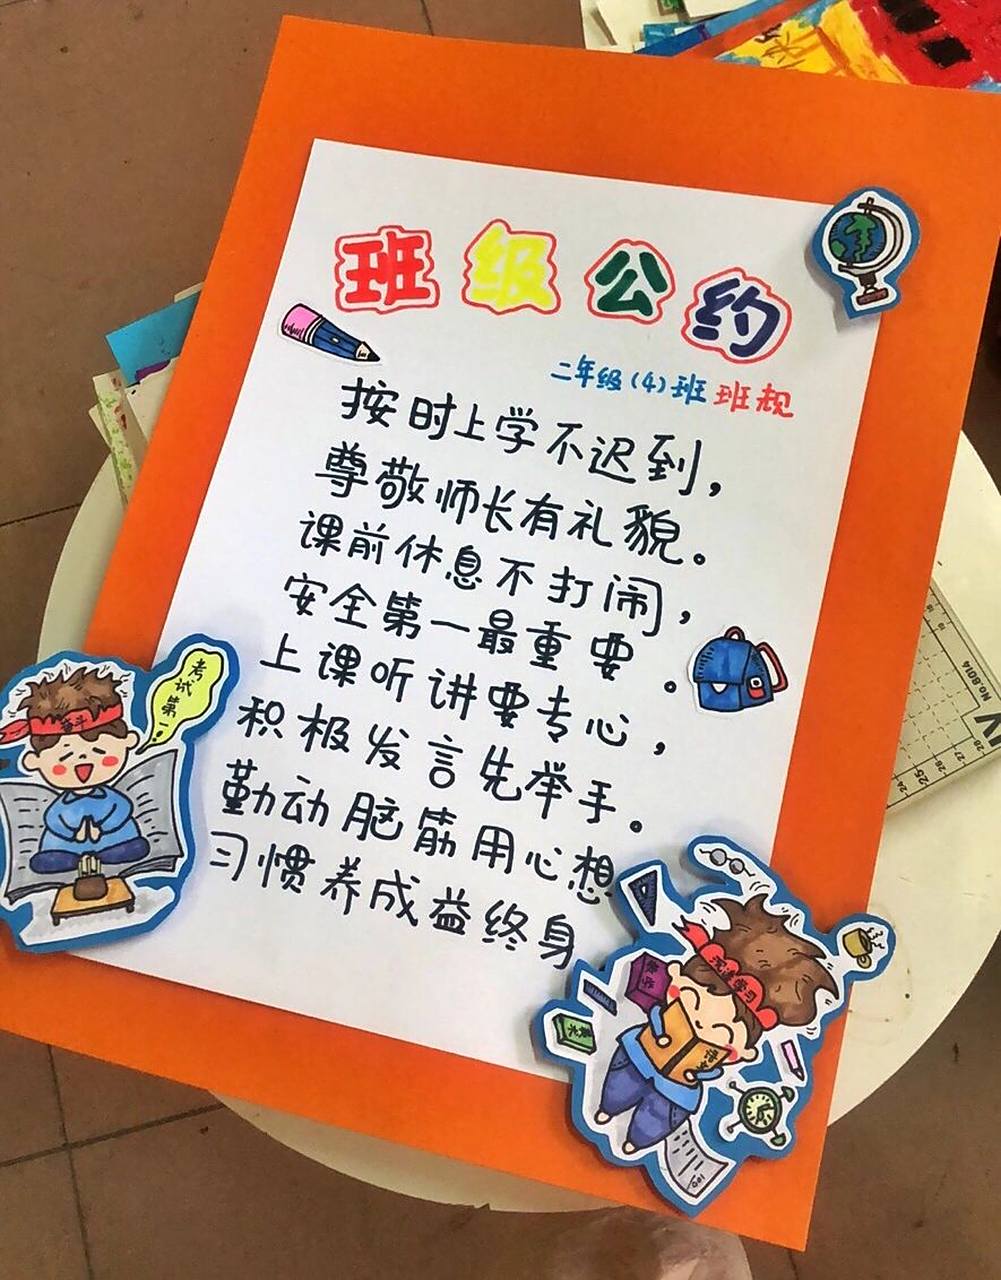 班级公约
二年级(4)班班规
按时上学不迟到，
尊敬师长有礼貌。
课前休息不打闹，
安全第一最重要。
上课听讲要专心，
积极发言先举手。
勤动脑筋用心想
习惯养成益终身
考试第一!
奋斗
沉迷学习
语文
100
No.8014